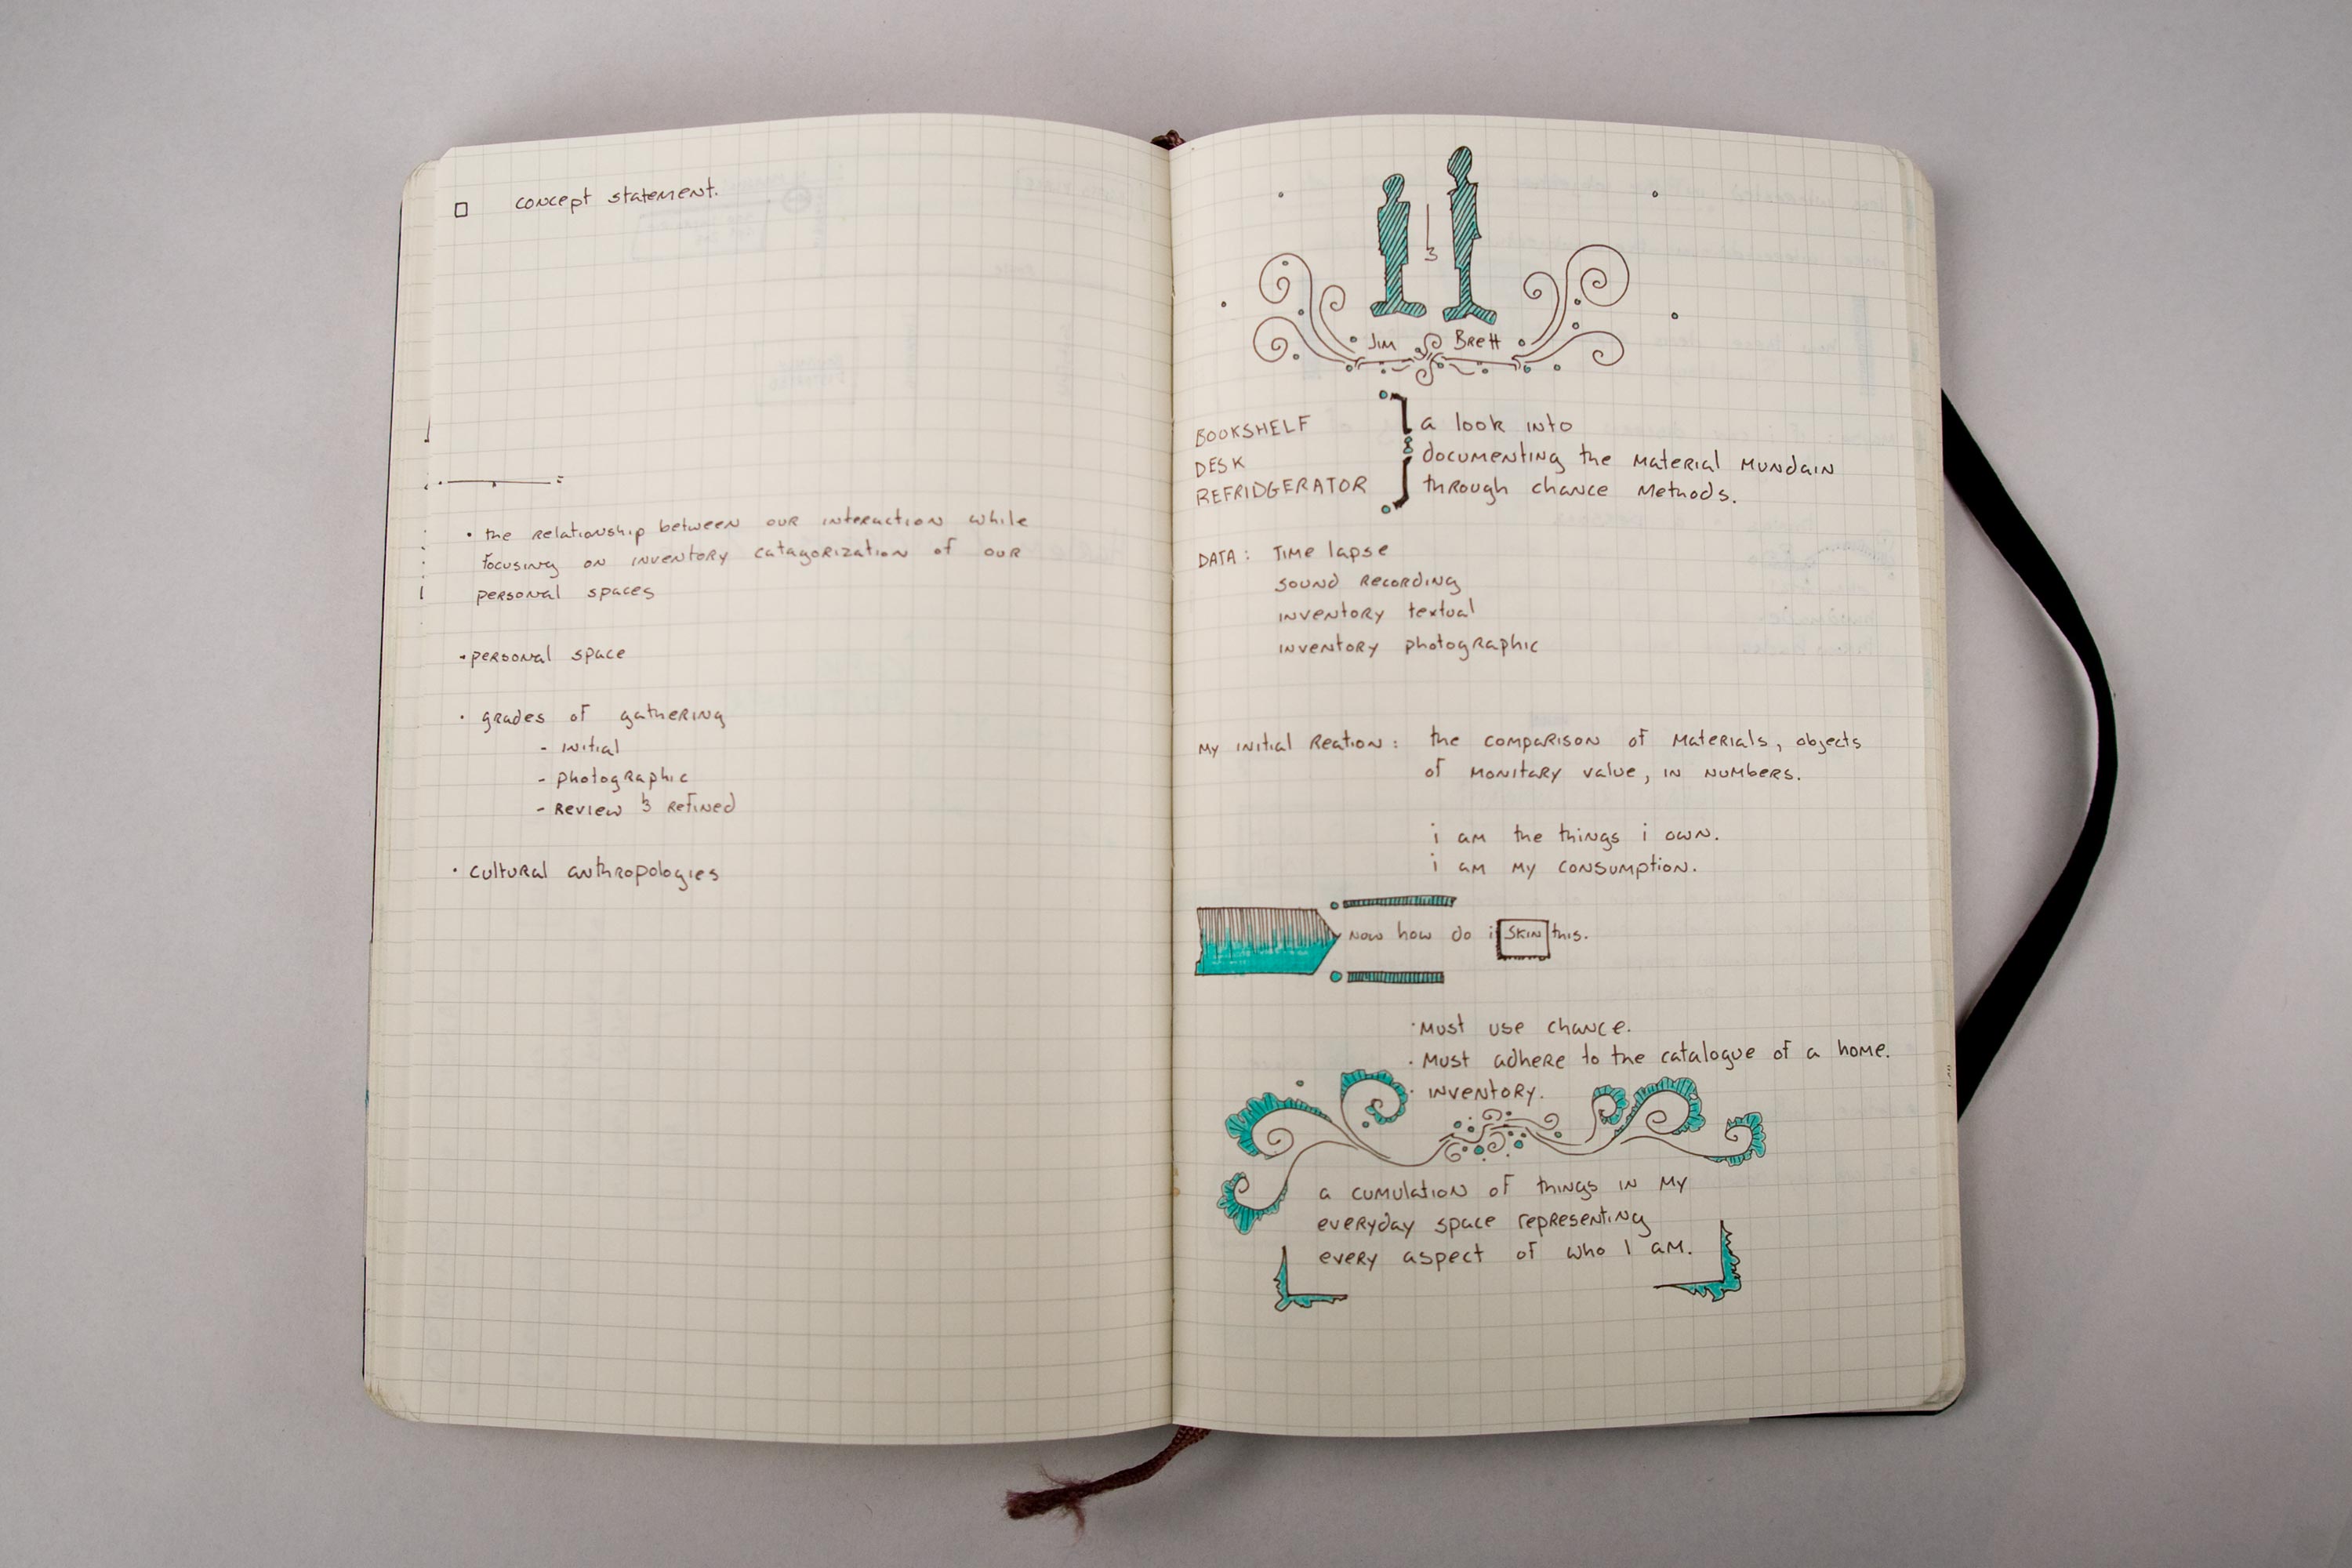 concept statement.
• the relationship between our interaction while
focusing on inventory catagorization of our
personal spaces
• personal space
• grades of gathering
- initial
- photographic
- Review & Refined
• cultural anthropologies
&
Jim Brett
BOOKSHELF
DESK
REFRIDGERATOR
a look into
documenting the material mundain
through chance methods.
DATA: Time lapse
sound recording
inventory textual
inventory photographic
My initial Reation: the comparison of materials, objects
of monitary value, in numbers.
i am the things i own.
i am my consumption.
now how do i SKIN this.
• Must use chance.
• Must adhere to the catalogue of a home.
• inventory.
a cumulation of things in my
everyday space representing
every aspect of who I am.